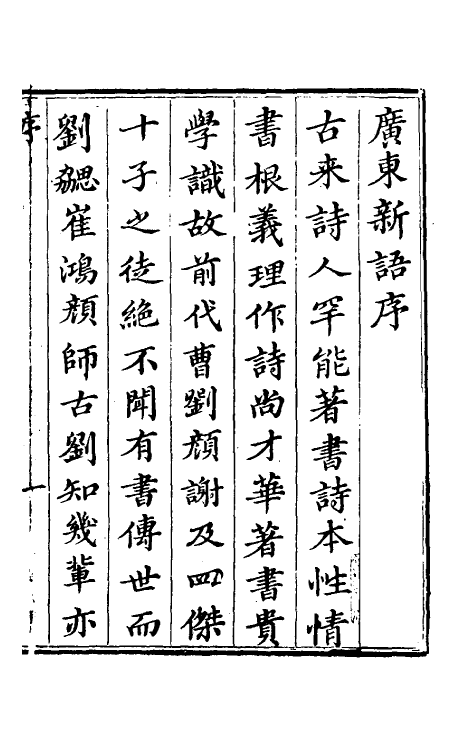 廣東新語序
古来詩人罕能著書詩本性情
書根義理作詩尚才華著書貴
學識故前代曹劉顔謝及四傑
十子之徒絶不聞有書傳世而
劉勰崔鴻顔師古劉知幾輩亦
序
一